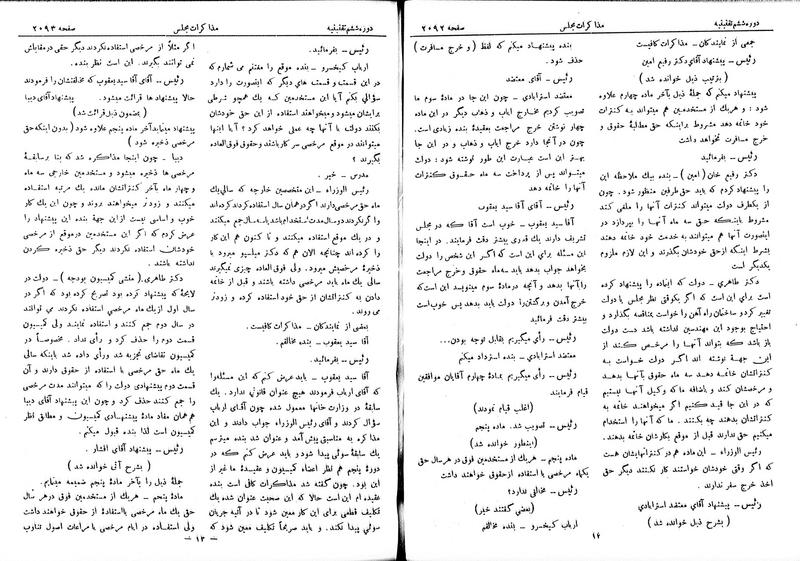 دوره ششم تقنینیه
مذاکرات مجلس
صفحه ۲۰۹۲
جمعی از نمایندگان ـ مذاکرات کافیست
رئیس ـ پیشنهاد آقای دکتر رفیع امین
( بترتیب ذیل خوانده شد )
پیشنهاد میکنم که جملهٔ ذیل بآخر ماده چهارم علاوه
شود : و هریک از مستخدمین هم میتوانند بکنترات
خود خاتمه دهد مشروط براینکه حق مطالبهٔ حقوق و
خرج مسافرت نخواهد داشت
رئیس ـ بفرمائید
دکتر رفیع خان ( امین ) ـ بنده بیک ملاحظه این
را پیشنهاد کردم که باید حق طرفین منظور شود . چون
از یکطرف دولت میتواند کنترات آنها را ملغی کند
مشروط باینکه حق سه ماه آنها را بپردازد در
اینصورت آنها هم میتوانند به خدمت خود خاتمه دهند
بشرط اینکه از حق خودشان بگذرند و این لازم ملزوم
یکدیگر است
دکتر طاهری ـ دولت که اینماده را پیشنهاد کرده
است برای این است که اگر یکوقتی نظر مجلس یا دولت
تغییر کرد و ساختمان راه آهن را خواست بمناقصه بگذارد و
احتیاج بوجود این مهندسین نداشته باشد دست دولت
باز باشد که بتواند آنها را مرخص کند از
این جهة نوشته اند اگر دولت خواست به
کنترانشان خاتمه دهد سه ماه حقوق بآنها بدهد
و مرخصشان کند و باضافه ما که وکیل آنها نیستیم
که در این جا قید کنیم اگر میخواهند خاتمه به
کنترانشان بدهند چه بکنند . ما که آنها را استخدام
میکنیم حق ندارند قبل از موقع بکارشان خاتمه بدهند.
رئیس الوزراء ـ این ماده هم در کنتراتهایشان هست
که اگر وقتی خودشان خواستند کار نکنند دیگر حق
اخذ خرج سفر ندارند .
رئیس ـ پیشنهاد آقای معتضد استرابادی
( بشرح ذیل خوانده شد )
بنده پیشنهاد میکنم که لفظ ( و خرج مسافرت )
حذف شود .
رئیس ـ آقای معتضد
معتضد استرابادی ـ چون این جا در مادهٔ سوم ما
تصویب کردیم مخارج ایاب و ذهاب دیگر در این ماده
چهار نوشتن خرج مراجعت بعقیدهٔ بنده زیادی است.
چون در آنجا دارد خرج ایاب و ذهاب و در این جا
بهتر این است بعبارت این طور نوشته شود : دولت
میتواند پس از پرداخت سه ماه حقوق کنترات
آنها را خاتمه دهد
رئیس ـ آقای آقا سید یعقوب
آقا سید یعقوب ـ خوب است آقا که در مجلس
تشریف دارند یک قدری بیشتر دقت فرمایند . در اینجا
این مسئله برای این است که اگر این شخص را دولت
بخواهد جواب بدهد باید سه ماه حقوق و خرج مراجعت
را بآنها بدهد و آنچه در مادهٔ سوم مینویسد این است که
خرج آمدن و برگشتن را دولت باید بدهد پس خوب است
بیشتر دقت فرمائید
رئیس ـ رأی میگیریم بقابل توجه بودن...
معتضد استرابادی ـ بنده استرداد میکنم
رئیس ـ رأی میگیریم بمادهٔ چهارم آقایان موافقین
قیام فرمایند
( اغلب قیام نمودند )
رئیس ـ تصویب شد. ماده پنجم
(اینطور خوانده شد)
ماده پنجم ـ هر یک از مستخدمین فوق در هر سال حق
یکماه مرخصی با استفاده از حقوق خواهند داشت
رئیس ـ مخالفی ندارد؟
(بعضی گفتند خیر)
ارباب کیخسرو ـ بنده مخالفم
۱۲
دوره ششم تقنینیه
مذاکرات مجلس
صفحه ۲۰۹۳
رئیس ـ بفرمائید.
ارباب کیخسرو ـ بنده موقع را مغتنم می شمارم که
در این قسمت و قسمت های دیگر که اینصورت را دارد
سؤالی بکنم آیا این مستخدمین که یک همچو شرطی
برایشان میشود و میخواهند استفاده از این حق خودشان
بکنند دولت با آنها چه عملی خواهد کرد ؟ آیا اینها
میتوانند در موقع مرخصی سر کار باشند و حقوق فوق العاده
بگیرند ؟
مدرس ـ خیر .
رئیس الوزراء ـ این متخصصین خارجه که سالی یک
ماه حق مرخصی دارند اگر در همان سال استفاده کردند کرده اند
و اگر نکردند در سال مدت استخدام باشد یا سه سال جمع میکنند
و در یک موقع استفاده میکنند و تا کنون هم این کار
را کرده اند چنانچه الان هم که دکتر میلسپو میرود با
ذخیرهٔ مرخصیش میرود . ولی فوق العاده چیزی نمیگیرند
سالی یک ماه باید مرخصی داشته باشند و قبل از خاتمه
دادن به کنتراتشان از حق خود استفاده کرده و زودتر
می روند .
بعضی از نمایندگان ـ مذاکرات کافیست.
آقا سید یعقوب ـ بنده مخالفم.
رئیس ـ بفرمائید.
آقا سید یعقوب ـ باید عرض کنم که این مسئله را
که آقای ارباب فرمودند هیچ عنوان قانونی ندارد . یک
سابقهٔ در وزارت خانها معمول شده چون آقای ارباب
سؤال کردند و آقای رئیس الوزراء جواب دادند و این
مذاکره به مناسبتی پیش آمد و عنوان شد بنده میترسم
یک سابقهٔ سوئی پیدا شود و باید عرض کنم که در
دورهٔ پنجم هم نظر اعضاء کمیسیون و عقیدهٔ ما غیر از
این بود. چون گفته شد مذاکرات کافی است بنده
عقیده ام این است حالا که این صحبت عنوان شده یک
تکلیف قطعی برای این کار معین شود تا در آتیه جریان
سوئی پیدا نکند. و باید صریحاً تکلیف معین شود که
اگر مثلا از مرخصی استفاده نکردند دیگر حقی در مقابلش
نمی توانند بگیرند. این است نظر بنده.
رئیس ـ آقای آقا سید یعقوب که مخالفتشان را فرمودند
حالا پیشنهاد ها قرائت میشود. پیشنهاد آقای دیبا
(بمضمون ذیل قرائت شد)
پیشنهاد مینماید بآخر ماده پنجم علاوه شود (بدون اینکه حق
مرخصی ذخیره شود )
دیبا ـ چون اینجا مذاکره شد که بنا بر سابقهٔ
مرخصی ها ذخیره میشود و مستخدمین خارجی سه ماه
و چهار ماه آخر کنتراتشان مانده یک مرتبه استفاده
میکنند و زودتر میخواهند بروند و چون این یک کار
خوب و اساسی نیست از این جهة بنده این پیشنهاد را
عرض کردم که اگر این مستخدمین در موقع از مرخصی
خودشان استفاده نکردند دیگر حق ذخیره کردن
نداشته باشند .
دکتر طاهری.(منشی کمیسیون بودجه) ـ دولت در
لایحهٔ که پیشنهاد کرده بود تصریح کرده بود که اگر در
سال اول از یک ماه مرخصی استفاده نکردند می توانند
در سال دوم جمع کنند و استفاده نمایند ولی کمیسیون
قسمت دوم را حذف کرد و رأی نداد . مخصوصاً در
کمیسیون تقاضای تجزیه شد و رأی داده شد باینکه سالی
یک ماه حق مرخصی با استفاده از حقوق دارند و آن
قسمت دوم پیشنهادی دولت را که میتوانند مدت مرخصی
را جمع کنند حذف کرد و چون این پیشنهاد آقای دیبا
هم همان مفاد مادهٔ پیشنهادی کمیسیون و مطابق نظر
کمیسیون است لذا بنده قبول میکنم.
رئیس ـ پیشنهاد آقای افشار .
( بشرح آتی خوانده شد )
جملهٔ ذیل را بآخر مادهٔ پنجم ضمیمه مینمایم.
مادهٔ پنجم ـ هر یک از مستخدمین فوق در هر سال
حق یک ماه مرخصی با استفاده از حقوق خواهند داشت
ولی استفاده در ایام مرخصی با مراعات اصول تناوب
ـ ۱۳ ـ